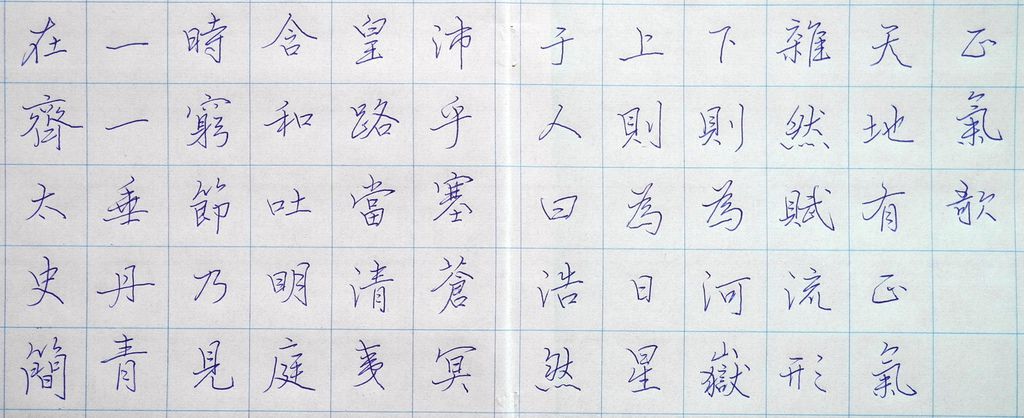 正氣歌
天地有正氣
雜然賦流形
下則為河嶽
上則為日星
于人曰浩然
沛乎塞蒼冥
皇路當清夷
含和吐明庭
時窮節乃見
一一垂丹青
在齊太史簡